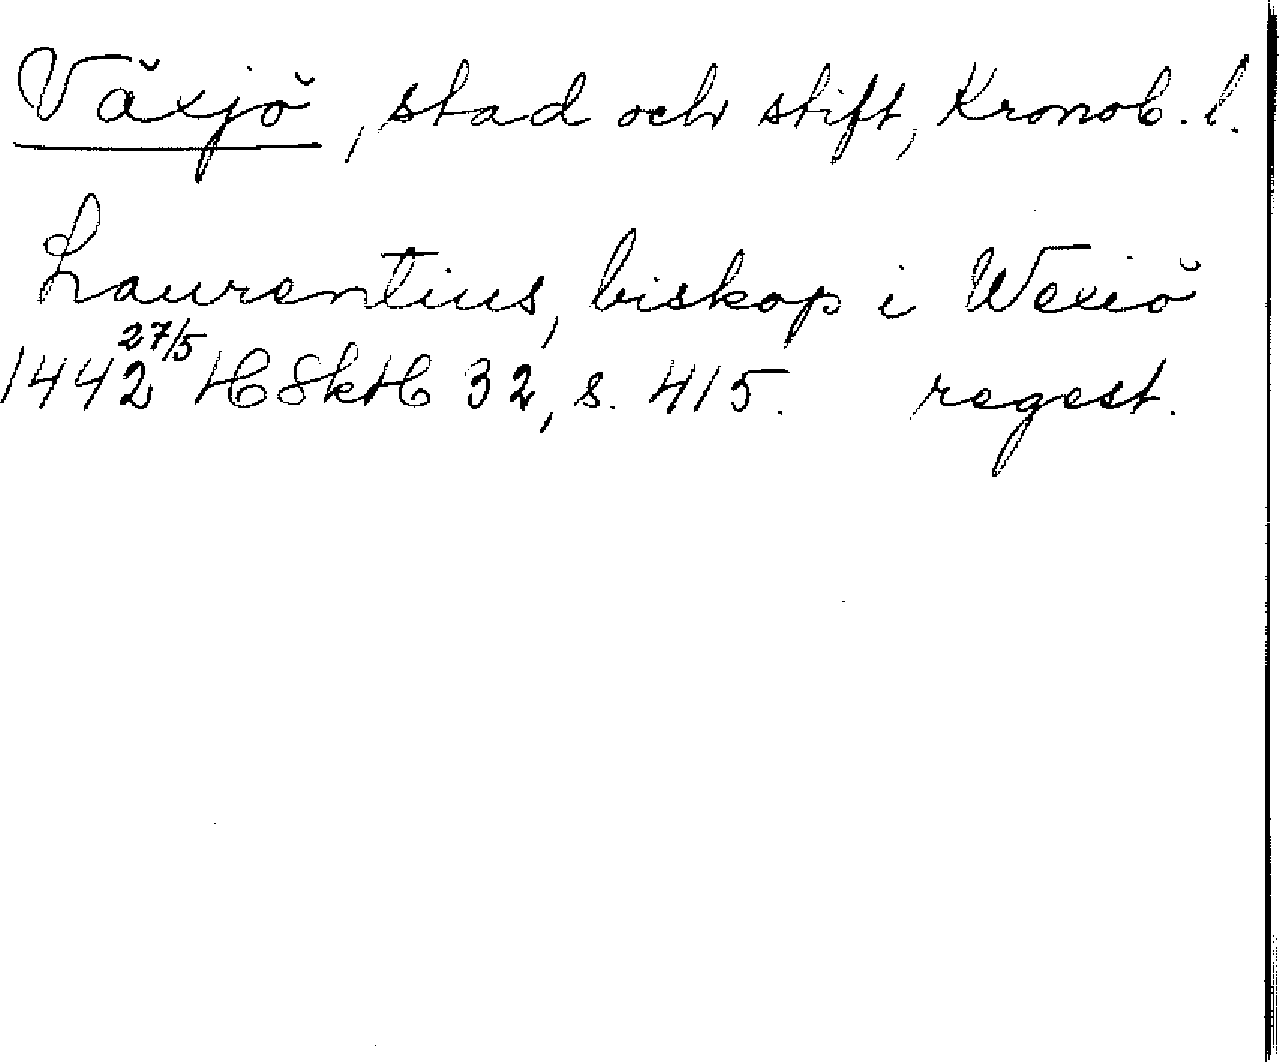 Växjö, stad och stift, Kronob. l.
Laurentius, biskop i Wexiö
1442 27/5 HSkH 32, s. 415. regest.